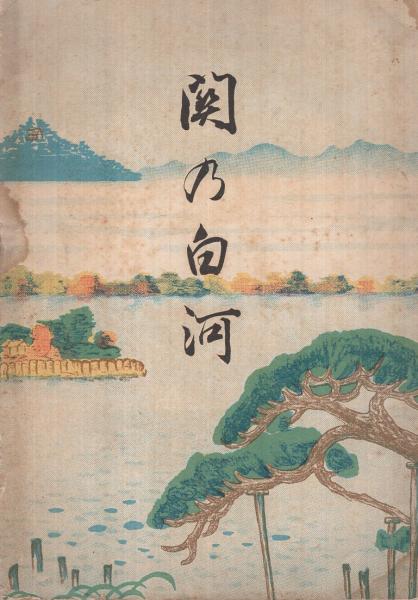 関乃白河